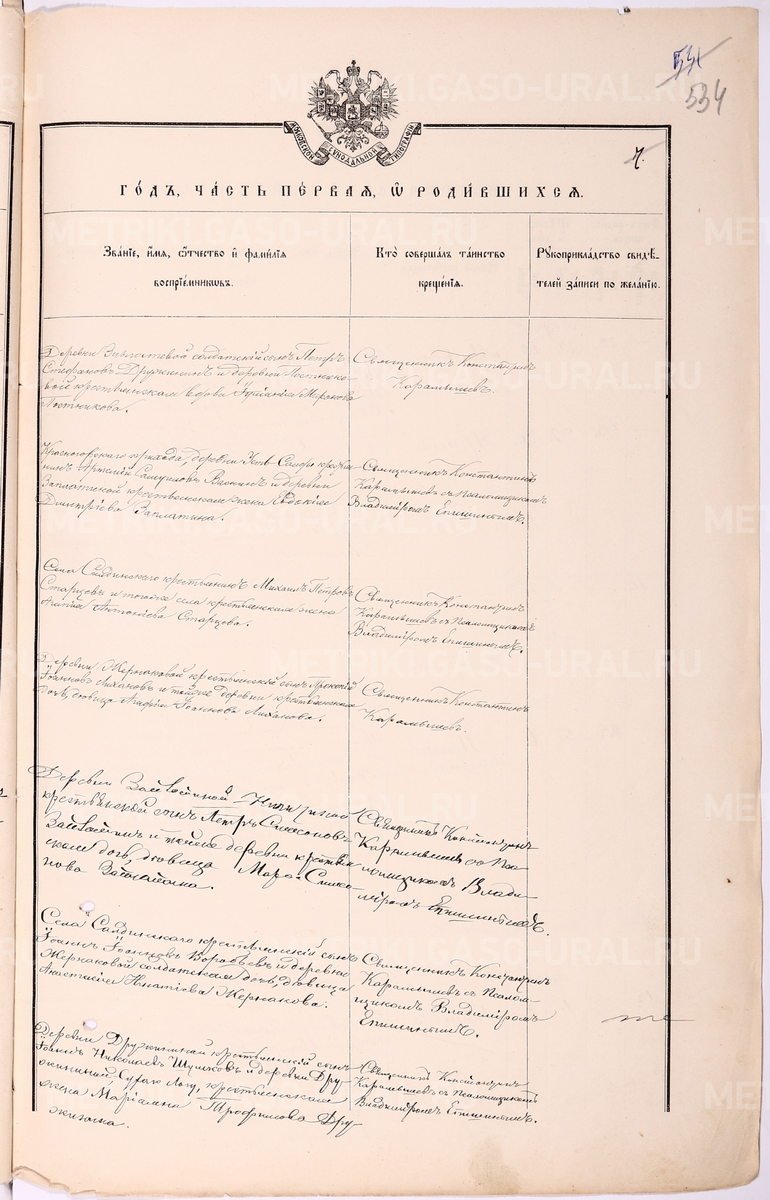 531
534
МОСКОВСКОЙ СѴНОДАЛЬНОЙ ТИПОГРАФІИ
7.
ГО́ДЪ, ЧА́СТЬ ПЕ́РВАЯ, Ѿ РОДИ́ВШИХСЯ.
Зва́ніе, и́мя, ѻ҆́тчество и҆ фами́лїя
воспрїе́мникѡвъ.
Кто̀ соверша́лъ та́инство
креще́нїя.
Рꙋкоприкла́дство свидѣ́-
телей за́писи по жела́нїю.
Деревни солдатскій сынъ Петръ
Стефановъ Дружининъ и деревни Постнико-
вой крестьянская вдова Миронова
Постникова.
Священникъ Константинъ
Карамышевъ.
Красноярскаго деревни Усть-Салды крестья-
нинъ Самуиловъ и деревни
Заплатиной крестьянская жена Евдокія
Дмитріева Заплатина.
Священникъ Константинъ
Карамышевъ съ Псаломщикомъ
Владиміромъ Епишинымъ.
Села Салдинскаго крестьянинъ Михаилъ Петровъ
Старцовъ и тогоже села крестьянская жена
Антоніева Старцова.
Священникъ Константинъ
Карамышевъ съ Псаломщикомъ
Владиміромъ Епишинымъ.
Деревни Жернаковой крестьянскій сынъ
Іоанновъ Лихановъ и тойже деревни крестьянская
дочь, дѣвица Іоаннова Лиханова.
Священникъ Константинъ
Карамышевъ.
Деревни
крестьянской сынъ Петръ Симеоновъ
и тойже деревни крестьян
ская дочь, дѣвица Симео-
нова
Священникъ Константинъ
Карамышевъ со Пса-
ломщикомъ Влади-
міромъ Епишинымъ.
Села Салдинскаго крестьянскій сынъ
Іоаннъ Іоанновъ Воробьевъ и деревни
Жернаковой солдатская дочь, дѣвица
Анастасія Игнатіева Жернакова.
Священникъ Константинъ
Карамышевъ съ Псалом-
щикомъ Владиміромъ
Епишинымъ.
Деревни Дружининой крестьянскій сынъ
Іоаннъ Николаевъ и деревни Дру
жининой крестьянская
жена Маріамна Трофимова Дру-
жинина.
Священникъ Константинъ
Карамышевъ съ Псаломщикомъ
Владиміромъ Епишинымъ.
METRIKI.GASO-URAL.RU